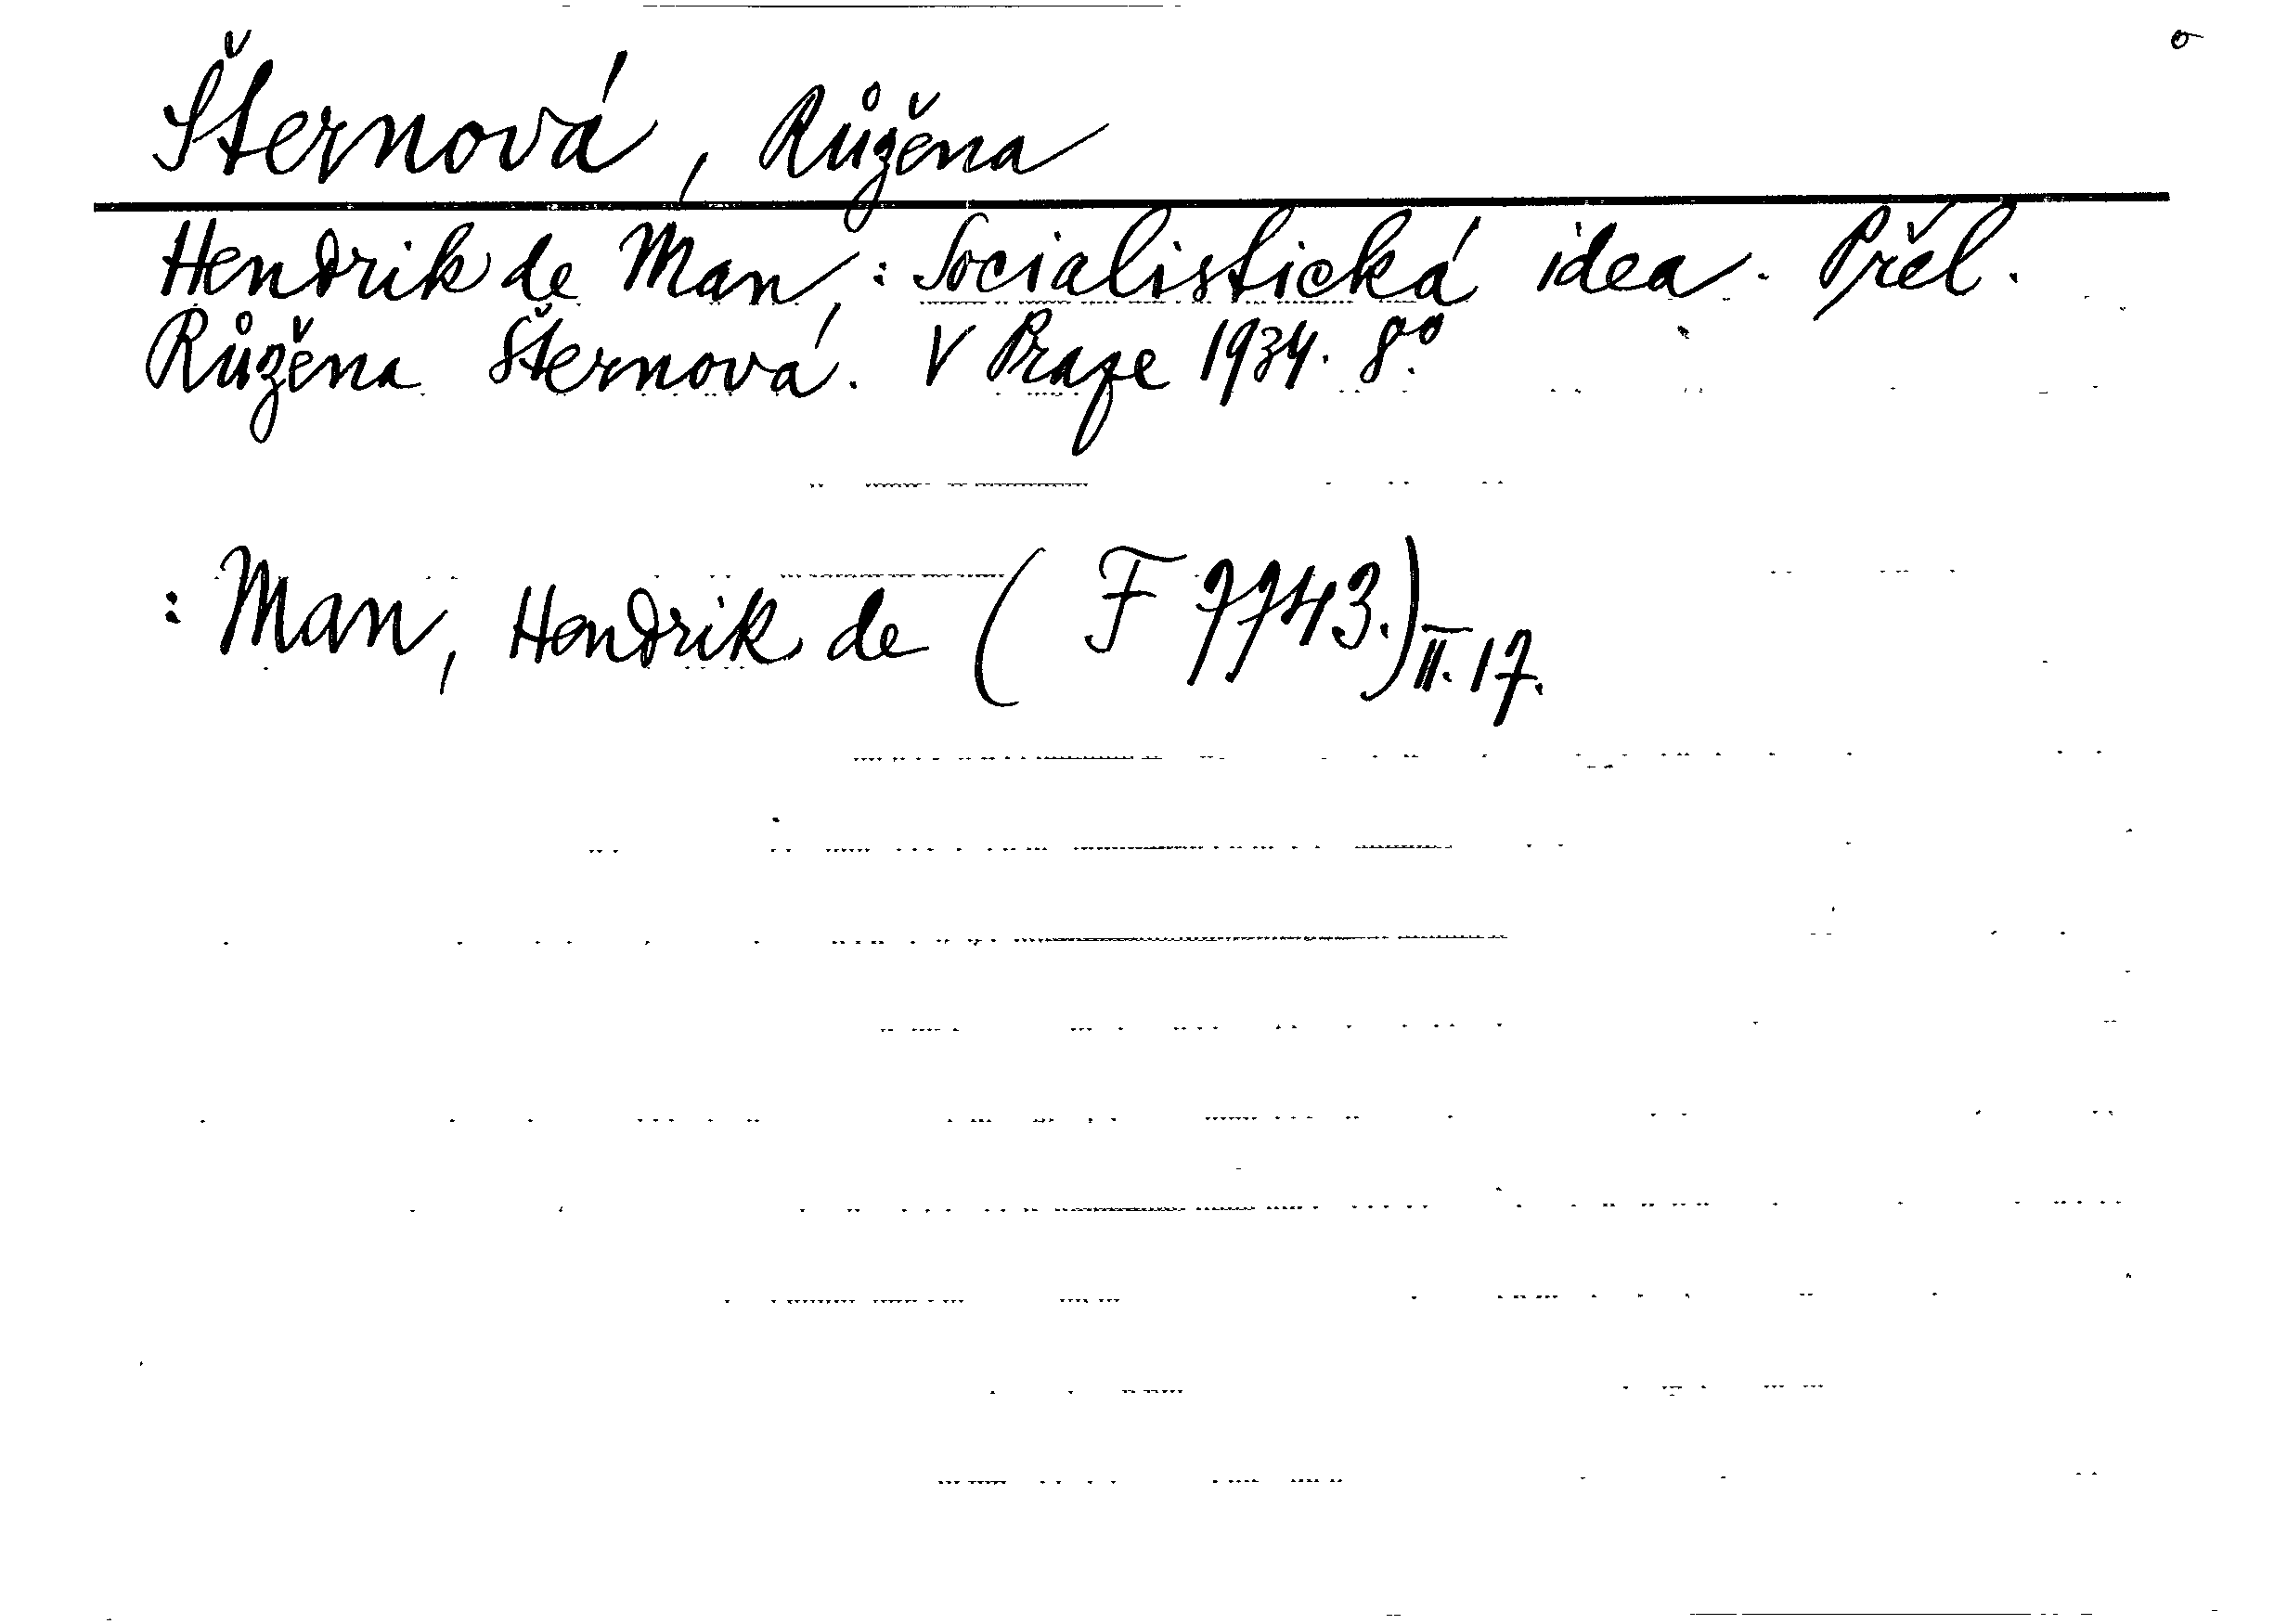 Šternová, Růžena
Hendrik de Man,: Socialistická idea. Přel.
Růžena Šternová. V Praze 1934. 8°.
: Man, Hendrik de (F 7743.) II. 17.